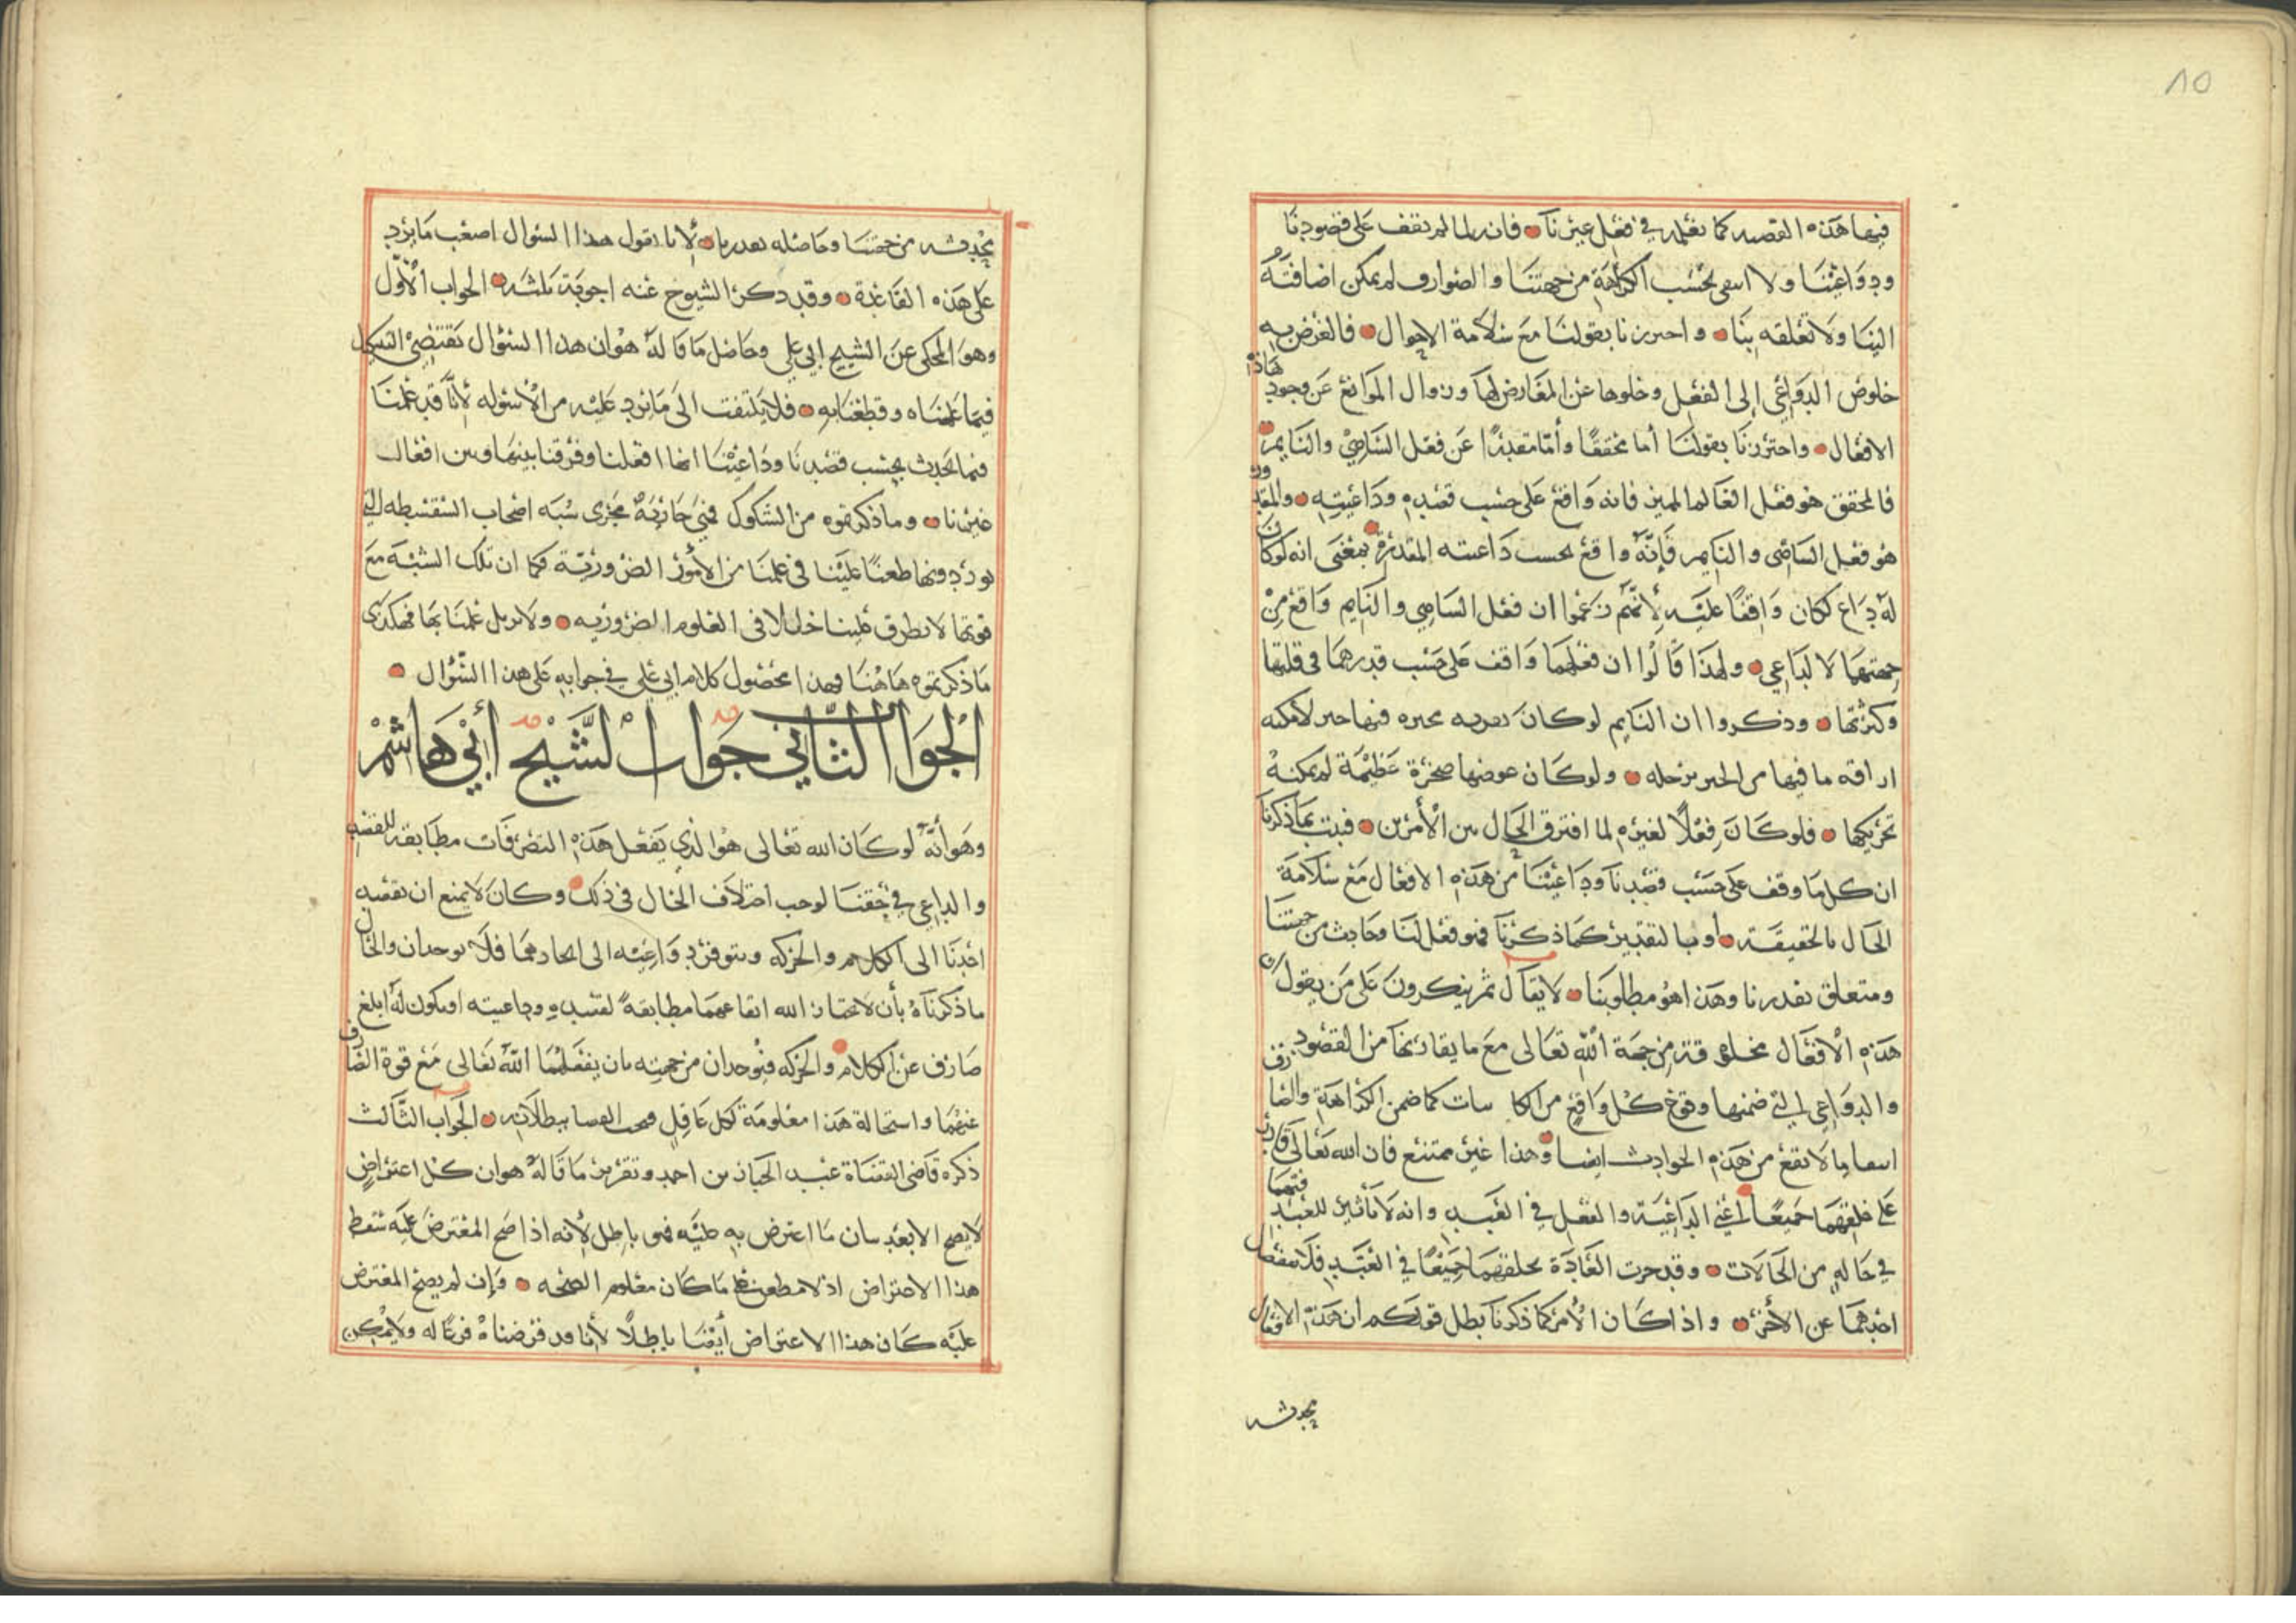 ٨٥
فيها هذه القضيه كما نعلمه في فعل غيرنا فانه لما لم تقف على قصودنا
ودواعينا ولا انتفى بحسب الكراهة من جهتنا والصوارف لم يمكن اضافته
الينا ولا تعلقه بنا واحترزنا بقولنا مع سلامة الاحوال فالغرض به
خلوص الدواعي إلى الفعل وخلوها عن المعارض لها وزوال الموانع عن وجود هاذه
الافعال واحترزنا بقولنا أما محققا وأما مقدرا عن فعل الساهي والنايم
فالمحقق هو فعل العالم المميز فانه واقع على حسب قصده وداعيته والمقدور
هو فعل الساهي والنايم فإنه واقع بحسب داعيته المقدرة بمعنى انه لو كان
له داع لكان واقفا عليه لأنهم زعموا ان فعل الساهي والنايم واقع من
جهتهما لا لداعي ولهذا قالوا ان فعلهما واقف على حسب قدرهما في قلتها
وكثرتها وذكروا ان النايم لو كان بقربه فيها لامكنه
اراقه ما فيها من برجله ولو كان عوضها صخرة عظيمة لم يمكنه
تحريكها فلو كان فعلا لغيره لما افترق الحال بين الأمرين فثبت بما ذكرنا
ان كل ما وقف على حسب قصدنا وداعيتنا من هذه الافعال مع سلامة
الحال بالحقيقة أو بالتقدير كما ذكرنا فهو فعل لنا وحادث من جهتنا
ومتعلق بقدرنا وهذا هو مطلوبنا لا يقال ثم تنكرون على من يقول ان
هذه الأفعال مخلوقة من جهة الله تعالى مع ما يقارنها من القصود
والدواعي التي ضمنها وقوع كل واقع من كما ضمن الكراهة والصارف
انتفا ما لا يقع من هذه الحوادث ايضا وهذا غير ممتنع فان الله تعالى قادر
على خلقهما جميعا أعني الداعية والفعل في العبد وانه لا تأثير للعبد فيهما
في حالة من الحالات وقد جرت العادة بخلقهما جميعا في العبد فلا ينفصل
احدهما عن الأخر واذا كان الأمر كما ذكرنا بطل قولكم ان هذه الافعال
يحدثه
يحدثه من جهتنا وحاصله بقدرنا لأنا نقول هذا السؤال اصعب ما يرد
على هذه القاعدة وقد ذكر الشيوخ عنه اجوبة ثلثه الجواب الأول
وهو المحكى عن الشيخ ابي علي وحاصل ما قاله هو ان هذا السؤال يقتضى التشكيك
فيما علمناه وقطعنا به فلا يلتفت الى ما يرد عليه من الأسوله لأنا قد علمنا
فيما يحدث بحسب قصدنا وداعيتنا انها افعلنا وفرقنا بينها وبين افعال
غيرنا وما ذكرتموه من الشكوك فهي جارية مجرى شبه اصحاب السفسطه التي
يوردونها طعنا علينا في علمنا من الأمور الضرورية فكما ان تلك الشبه مع
قوتها لا تطرق علينا خللا في العلوم الضروريه ولا يزيل علمنا بها فهكذى
ما ذكرتموه هاهنا وهذا محصول كلام ابي علي في جوابه على هذا السؤال
الجواب الثاني جواب الشيخ أبي هاشم
وهو أنه لو كان الله تعالى هو الذي يفعل هذه التصرفات مطابقه للقصد
والداعي في حقنا لوجب اختلاف الحال في ذلك وكان لا يمنع ان يقصد
احدنا الى الكلام والحركه وتتوفر دواعيه الى ايجادهما فلا يوجدان والحال
ما ذكرناه بأن لا يختار الله ايقاعهما مطابقة لقصده وداعيته او يكون له ابلغ
صارف عن الكلام والحركه فيوجدان من جهته بان يفعلهما الله تعالى مع قوة الصارف
عنهما واستحالة هذا معلومة لكل عاقل القضا ببطلانه الجواب الثالث
ذكره قاضى القضاة عبد الجبار بن احمد وتقرير ما قاله هو ان كل اعتراض
لا يصح الا بعد بيان ما اعترض به عليه فهو باطل لأنه اذا صح المعترض عليه سقط
هذا الاعتراض اذ لا مطعن على ما كان معلوم الصحه وإن لم يصح المعترض
عليه كان هذا الاعتراض أيضا باطلا لأنا قد فرضناه فرعا له ولا يمكن